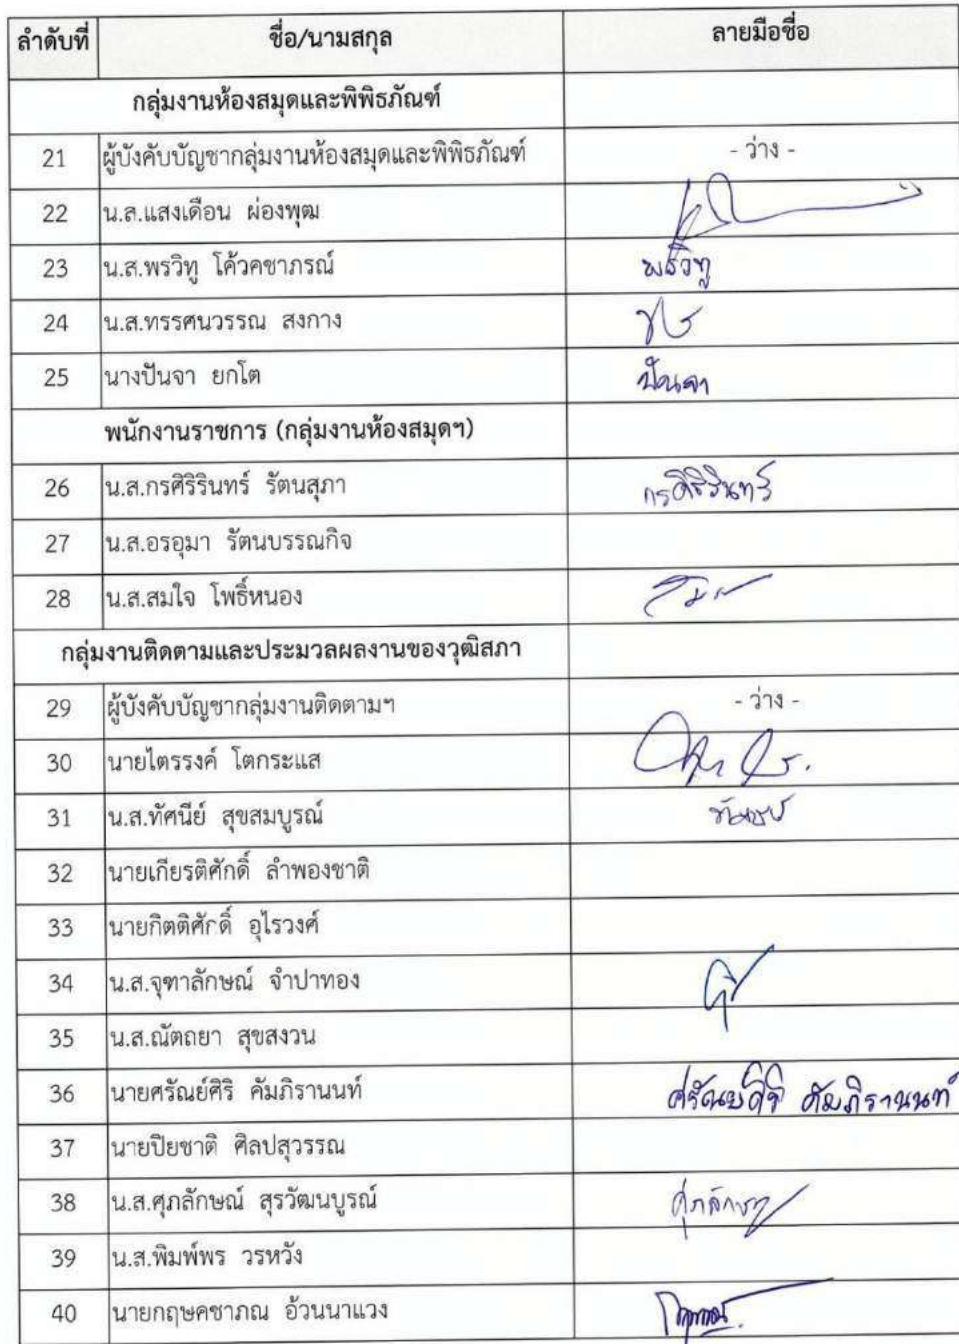 ลำดับที่ ชื่อ/นามสกุล ลายมือชื่อ
กลุ่มงานห้องสมุดและพิพิธภัณฑ์
21 ผู้บังคับบัญชากลุ่มงานห้องสมุดและพิพิธภัณฑ์ - ว่าง -
22 น.ส.แสงเดือน ผ่องพุฒ
23 น.ส.พรวิทู โค้วคชาภรณ์ พรวิทู
24 น.ส.ทรรศนวรรณ สงกาง
25 นางปันจา ยกโต ปันจา
พนักงานราชการ (กลุ่มงานห้องสมุดฯ)
26 น.ส.กรศิริรินทร์ รัตนสุภา กรศิริรินทร์
27 น.ส.อรอุมา รัตนบรรณกิจ
28 น.ส.สมใจ โพธิ์หนอง
กลุ่มงานติดตามและประมวลผลงานของวุฒิสภา
29 ผู้บังคับบัญชากลุ่มงานติดตามฯ - ว่าง -
30 นายไตรรงค์ โตกระแส
31 น.ส.ทัศนีย์ สุขสมบูรณ์
32 นายเกียรติศักดิ์ ลำพองชาติ
33 นายกิตติศักดิ์ อุไรวงศ์
34 น.ส.จุฑาลักษณ์ จำปาทอง
35 น.ส.ณัตถยา สุขสงวน
36 นายศรัณย์ศิริ คัมภิรานนท์ ศรัณย์ศิริ คัมภิรานนท์
37 นายปิยชาติ ศิลปสุวรรณ
38 น.ส.ศุภลักษณ์ สุรวัฒนบูรณ์ ศุภลักษณ์
39 น.ส.พิมพ์พร วรหวัง
40 นายกฤษคชาภณ อ้วนนาแวง